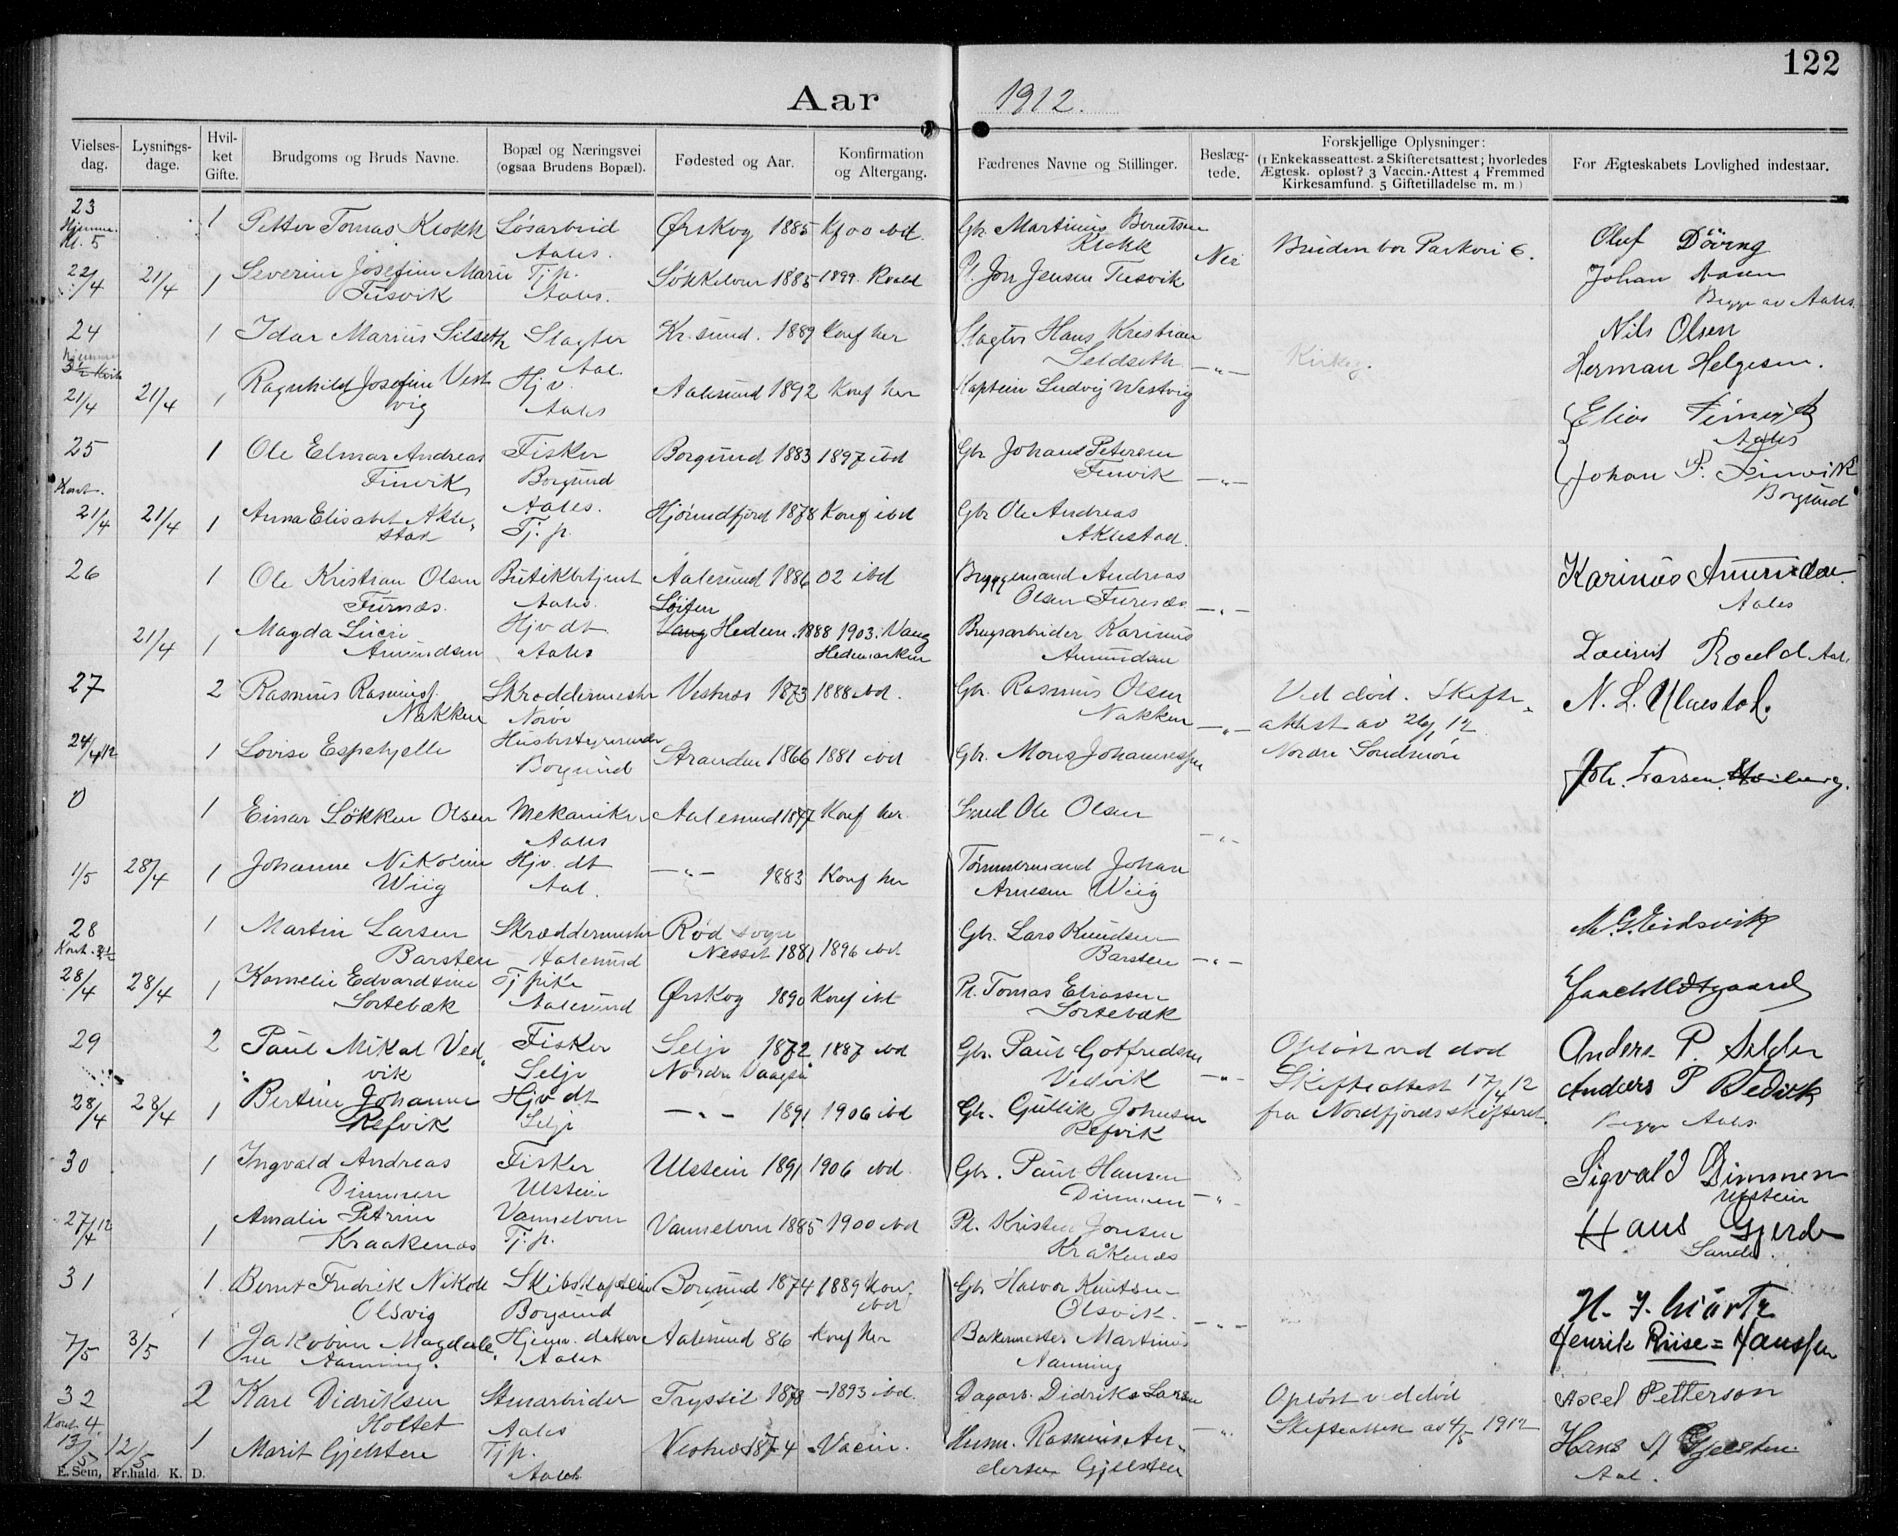 122
Aar 1912.
Vielses-dag. Lysnings-dage. Hvil-ket Gifte. Brudgoms og Bruds Navne. Bopæl og Næringsvei (ogsaa Brudens Bopæl). Fødested og Aar. Konfirmation og Altergang. Fædrenes Navne og Stillinger. Beslæg-tede. Forskjellige Oplysninger: (1 Enkekasseattest. 2 Skifteretsattest; hvorledes Ægtesk. opløst? 3 Vaccin.-Attest 4 Fremmed Kirkesamfund. 5 Giftetilladelse m. m.) For Ægteskabets Lovlighed indestaar.
23 1 Petter Tomas Klokk Løsarbeid Ørskog 1885 Kf 00 ibd. Gbr. Martinus Berntsen Oluf Döving
Kl. 5 Aales. Klokk Nei Bruden bor Parkvei 6.
22/4 21/4 1 Severine Josefine Marie Tj.p. Søkkelven 1885 1899. Pl. Jon Jensen Tusvik Johan Aasen
Tusvik Aales. Begge av Aales.
24 1 Idar Marius Silseth Slagter Kr.sund. 1889 Konf her Slagter Hans Kristian Nils Olsen
Aal. Seldseth —"— Herman Helgesen.
21/4 21/4 1 Ragnhild Josefine Vest Hjv. Aalesund 1892 Konf her Kaptein Ludvig Westvig
vig Aales Elias
Aales
25 1 Ole Elmar Andreas Fisker Borgund 1883 1897 ibd Gbr. Johans Petersen
Finvik Borgund Finvik —"— Johan P. Finvik
Kont. Borgund
21/4 21/4 1 Anna Elisabet Akle- Aales. Hjørundfjord 1878 Konf ibd Gbr Ole Andreas
stad Tj.p. Aklestad.
26 1 Ole Kristian Olsen Butikbetjent Aalesund 1886 02 ibd Bryggemand Andreas
Furnæs. Aales. Løiten Olsen Furnæs. —"— Aales
21/4 1 Magda Lucie Hjv dt. Vang Hedem. 1888 1903. Vang Brugsarbeider Karinus
Amundsen Aales Hedemarken Amundsen Roald Aales
27 2 Rasmus Rasmuss. Skræddermester Vestnes 1873 1888 ibd. Gbr. Rasmus Olsen Ved død. Skifte
Nakken Nørve Nakken —"— attest av 26/1 12
24/4 12 1 Lovise Espehjelle Husbestyrerinde Stranden 1866 1881 ibd Gbr. Mons Johannessen Nordre Søndmøre
Borgund
0 1 Einar Løkken Olsen Mekaniker Aalesund 1887 Konf her. Smed Ole Olsen
Aales —"—
1/5 28/4 1 Johanne Nikoline Hjv. dt —"— 1883 Konf her Tømmermand Johan
Wiig Aal. Arnesen Wiig
28 1 Martin Larsen Skræddermester Rød sogn Gbr. Lars Knudsen M. G. Eidsvik
Barsten Aalesund Nesset 1881 1896 ibd Barsten —"—
28/4 28/4 1 Kornelie Edvardine Tj pike Ørskog 1890 Konf ibd Pl. Tomas Eliassen
Sortebæk Aalesund Sortebæk
29 2 Paul Mikal Ved- Fisker Selje 1872 1887 ibd Gbr. Paul Gotfredsen Opløst ved død Anders P. Selder
vik Selje Nordre Vaagsø Vedvik —"— Skifteattest 17/4 12 Anders P Vedvik
28/4 28/4 1 Bertine Johanne Hjv dt —"— 1891 1906 ibd Gbr. Gullik Johnsen fra Nordfjords skifteret. Begge Aales
Refvik Selje Refvik
30 1 Ingvald Andreas Fisker Ulstein 1891 1906 ibd. Gbr. Paul Hansen Sigvald Dimmen
Dimmen Ulstein Dimmen —"— Ulstein
27/4 12 1 Amalie Petrine Vannelven Vannelven 1885 1900 ibd Pl. Kristen Jonsen Hans Gjerde
Kraakenæs Tj.p. Kråkenæs Sande.
31 1 Bernt Fredrik Nikolai Skibskaptein Borgund 1874 1889 Kon. ibd Gbr Halvor Knutsen
Olsvig Borgund Olsvik. —"—
7/5 3/5 1 Jakobine Magdale Hjemv. datter Aalesund 86 Konf her Bakermester Martinus Henrik Riise=Hanssen
ne Nanning. Aales Nanning
32 2 Karl Didriksen Stenarbeider Trysil 1878 —1893 ibd. Dagarb. Didrik Larsen Opløst ved død Axel Petterson
Kont. 4. Holtet Aales —"— Skifteattest av 4/5 1912
13/5 12/5 1 Marit Gjelsten Tj.p. Vestnes 1874 Husm. Rasmus An- Hans Gjelsten
Aales dersen Gjelsten Aal.
E. Sem, Fr.hald. K. D.